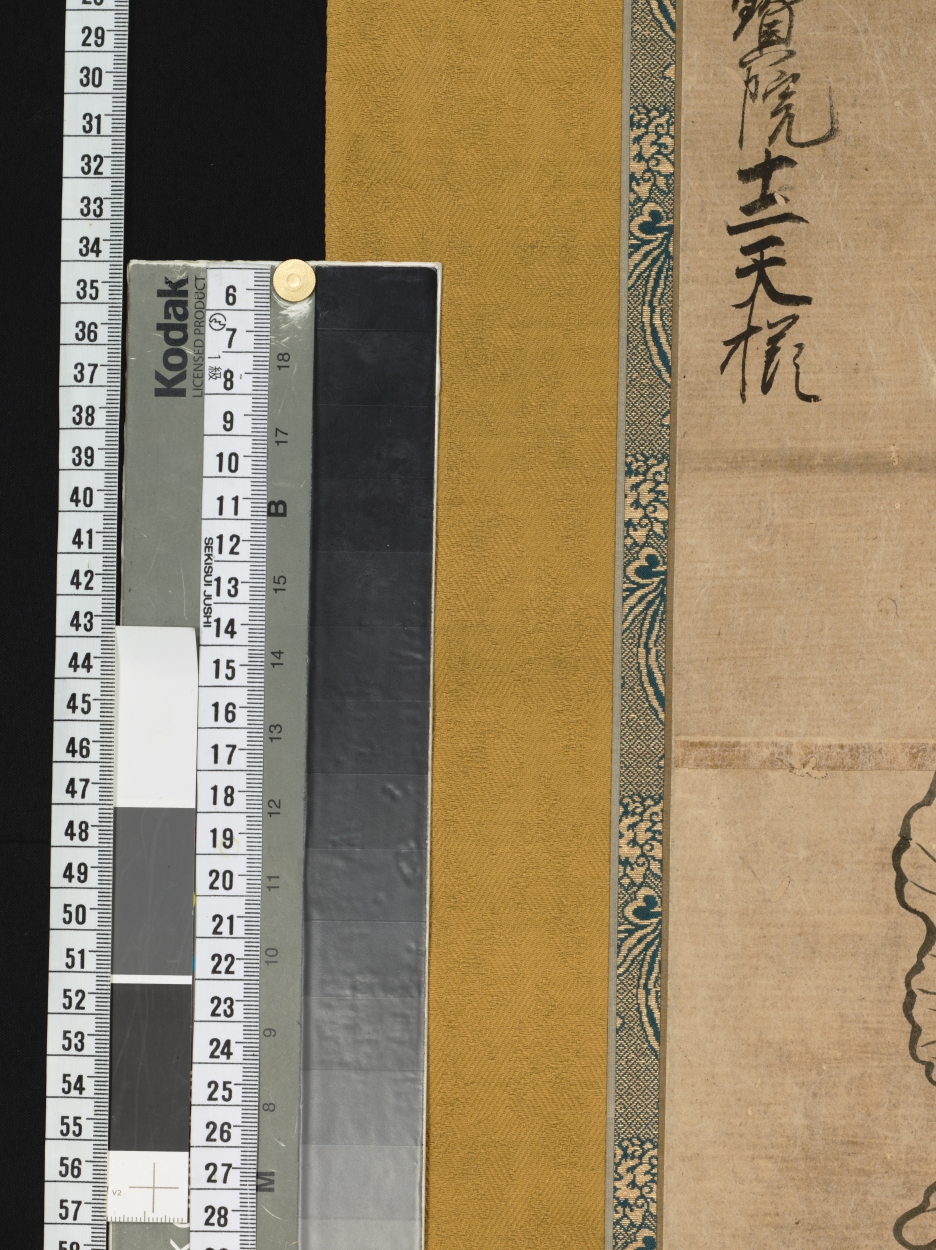 寳院十二天様
29
30
31
32
33
34
35
36
37
38
39
40
41
42
43
44
45
46
47
48
49
50
51
52
53
54
55
56
57
58
Kodak
LICENSED PRODUCT
6
7
1級
8
9
10
11
12
SEKISUI JUSHI
13
14
15
16
17
18
19
20
21
22
23
24
25
26
27
28
18
17
B
15
14
13
12
11
10
9
8
M
V2